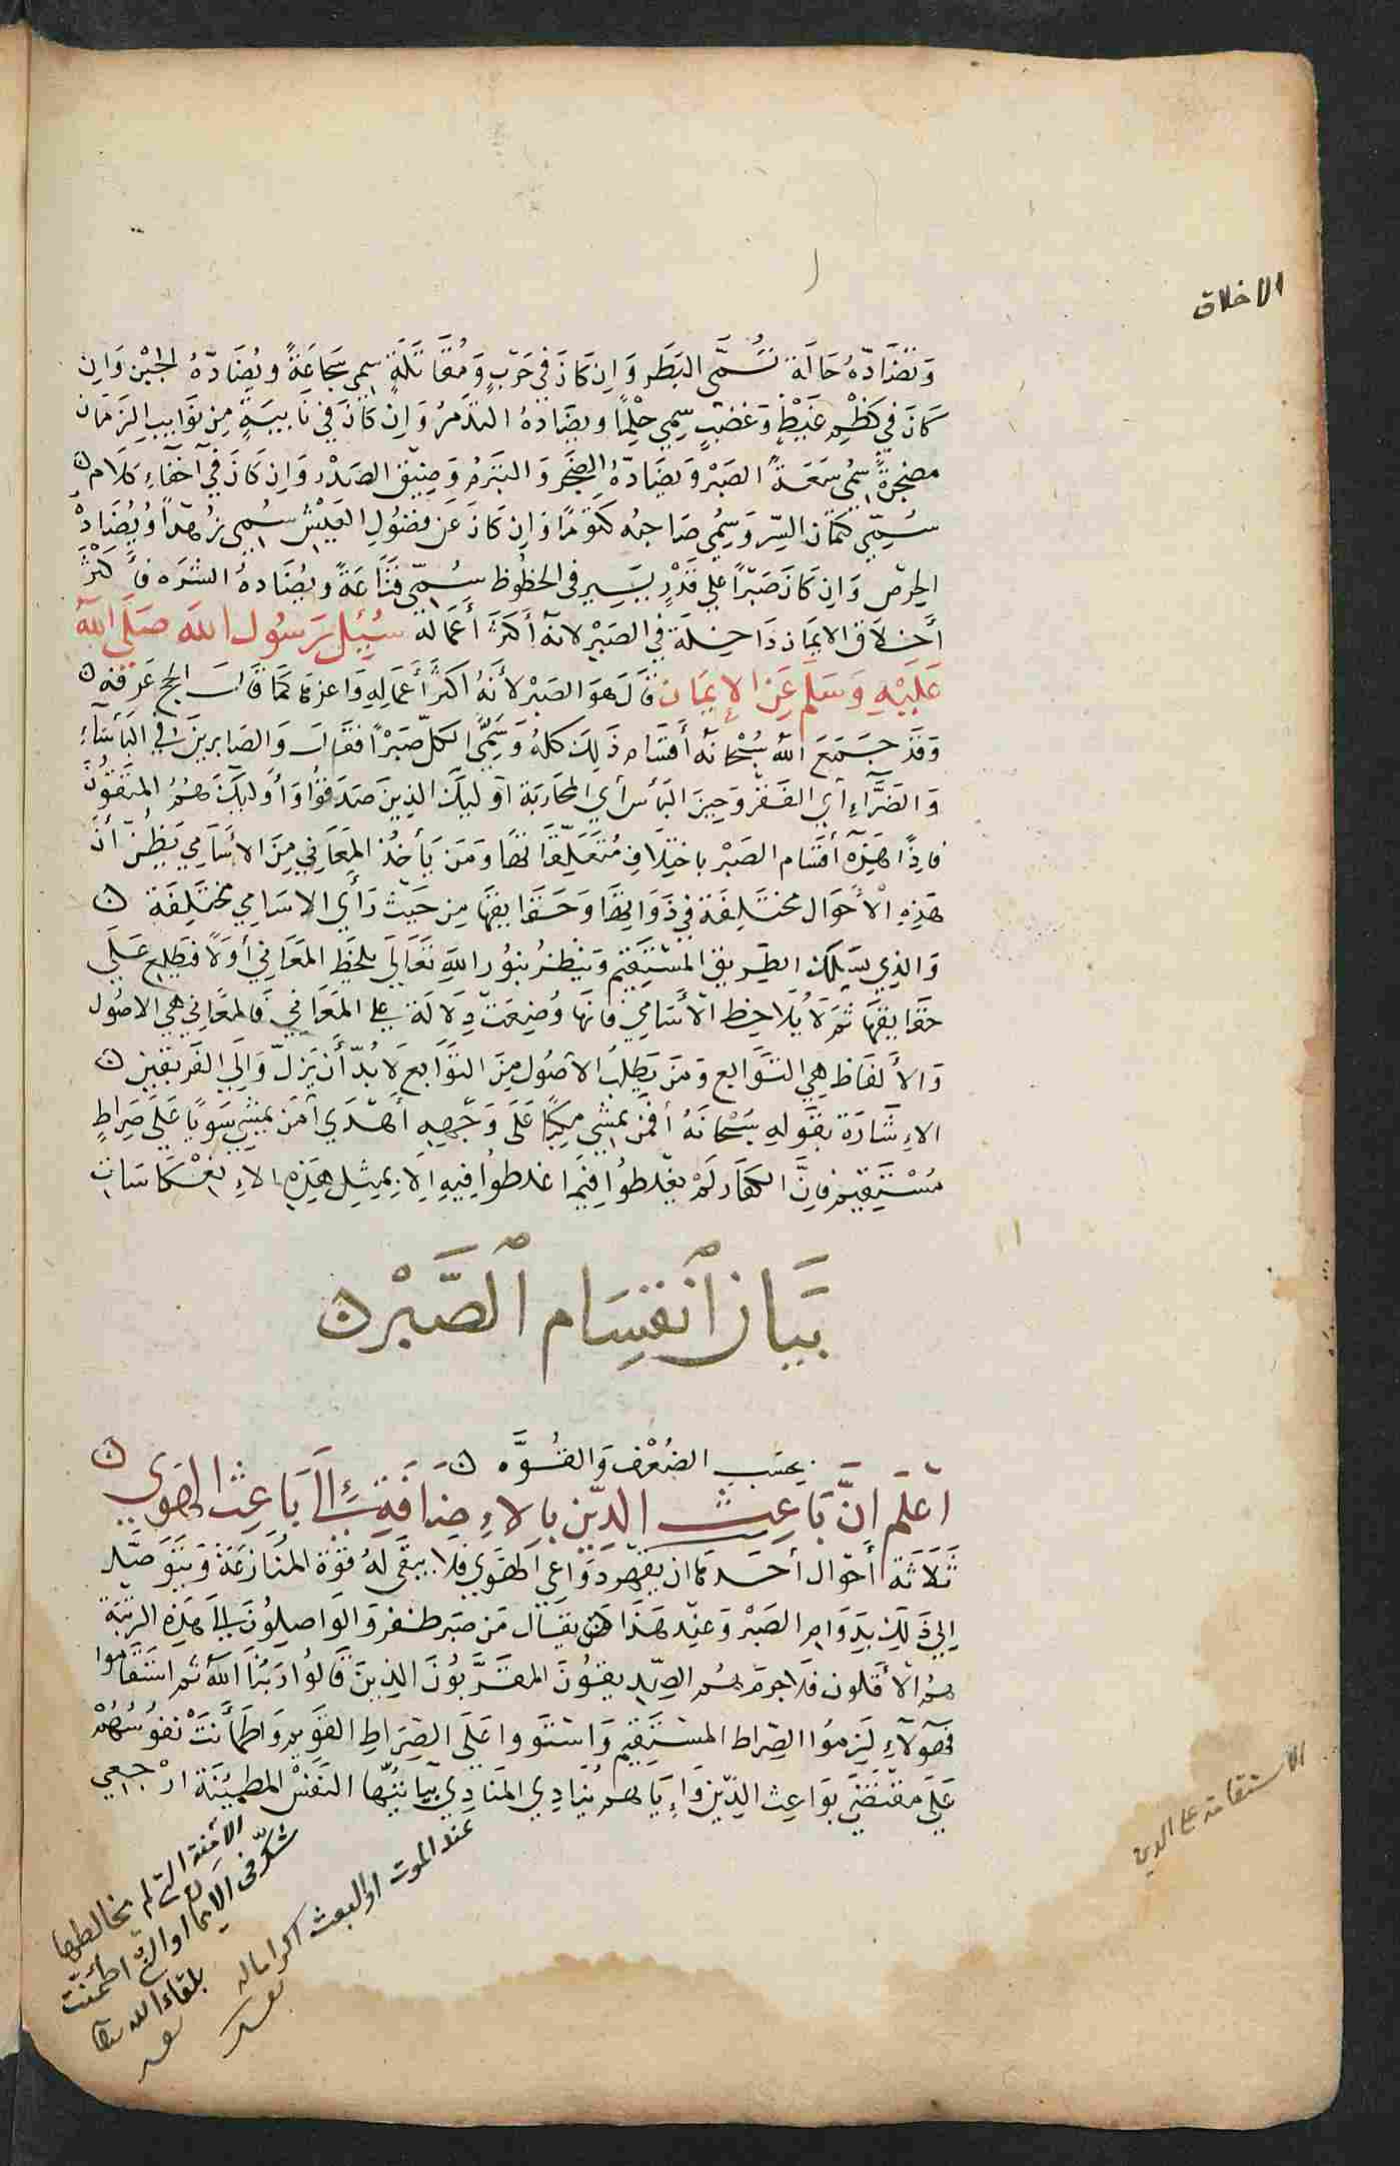 الاخلاق
وَتُضَادّهُ حَالَة تُسَمَّى البَطَر وَاِن كَانَ في حَرْبٍ وَمُقَاتَلَةٍ سمي شَجَاعَةً ويُضَادّهُ الجُبْن وَاِن
كَانَ في كَظْمِ غَيْظٍ وَغَضَبٍ سُمِّي حِلْمًا ويضَادهُ التذَمرُ وَاِنْ كَانَ في نَايبَةٍ مِن نوَايبِ الزمَان
مضجرةً سُمِّي سَعَة الصَبْر وَيضَادّهُ الضجَر وَالتبَرمُ وَضيق الصَدْر وَاِن كَانَ في اخفَاءِ كَلَام
سُمِّيَ كتمَان السِّر وَسُمِّي صَاحبُه كتومًا وَاِن كَانَ عَن فضُولِ العَيْش سُمى زهدًا وَيُضَادهُ
الحِرْص وَاِن كَانَ صَبْرًا عَلي قَدْرٍ يَسِير في الحظوظ سُمّي قَنَاعَةً ويُضَادهُ الشَرَه فَأكثَرُ
أخلَاق الايمَان دَاخِلَة في الصَبْر لانهُ أكثَر أعمَاله سُئِل رَسُول الله صَلى الله
عَلَيْهِ وَسَلم عَن الإيمَان قَال هوَ الصَبْر لأنهُ اكثَر أعمَالِهِ وَاعزهَا كمَا قَال الحج عَرفة
وَقد جَمَعَ الله سُبْحانَه أقسَام ذَلِك كلهُ وَسَمَّي الكلّ صَبْرًا فقَال وَالصَابرِينَ في البَأسَاءِ
وَالضَرَّاءِ أي الفَقْر وَحِينَ البَأس أي المحَاربَة أولَيك الذِينَ صَدَقوُا وَأولَيكَ هُمُ المتقوُنَ
فاذًا هَذِهِ أقسَام الصَبْر باختِلَافِ مُتعَلّقَاتهَا وَمَن يَأخذ المعَاني مِنَ الأسَامِي يَظُنّ أنَّ
هَذِهِ الأحوَال مختلِفَة في ذَوَاتِهَا وَحَقَايقهَا مِن حَيث رَأي الاسَامِي مختلِفَة
وَالذِي يَسلك الطرِيق المستَقِيم وَينظرُ بنوُر اللهِ تعَالَي يلحَظ المعَاني أولًا فيَطلِع عَلَي
حقَايقهَا ثمَ لَا يُلَاحِظ الأسَامِي فَانهَا وُضِعَت دِلَالَة على المعَاني فَالمعَاني هي الاصُول
وَالألفَاظ هِي التوَابع وَمَن يَطلبُ الأصُول مِنَ التوَابع لَا بُدّ أن يَزلّ وَإلَي الفَريقَين
الاِشَارَة بقَولهِ سُبْحانَهُ أفمَن يمشي مكِبًا عَلَى وَجْهِهِ أهدَي أمَن يمشي سَويًا عَلَى صِرَاطٍ
مُسْتَقِيم فاِنَّ الكفَار لَم يغلطوُا فيمَا غلطوُا فيهِ اِلا بمِثلِ هَذِهِ الاِنعْكَاسَات
بَيَان ٱنقِسَام ٱلصَّبْر
بحسَب الضُعْف وَالقُوَّه
اعْلَم انَّ بَاعِث الدِّين بالاِضَافَةِ اِلَى بَاعِث الهَوي
ثَلَاثَة أحوَال أحَدهَا ان يقهر دَوَاعي الهَوَي فلا يبقَى لَهُ قُوّة المنَازعَة وَيتوَصَّل
اِلي ذَلِك بدَوَامِ الصَبْر وَعِند هَذَا يقَال مَن صبَر ظفر وَالوَاصِلوُنَ اِلَى هَذِهِ الرتبَة
هم الأقلون فلَا جرمَ هُم الصِدّيقوُنَ المقَرَّبُونَ الذِينَ قَالوُا رَبُنَا الله ثم استَقَامُوا
فهَؤلَاءِ لَزِمُوا الصِرَاط المستَقِيم وَاستَوَوا عَلَى الصِّرَاطِ القَوِيم وَاطمَأنَّتْ نفوُسُهُمْ
عَلَى مقتَضَي بوَاعِث الدّين وَاِيَّاهم ينَادِي المنَادِي يَا أيَّتُهَا النَفسُ المُطْمَئِنّة ارْجعي
عند الموت او البعث اكراما له
الآمنة التي لم يخالطها
شكّ في الايمان او التي اطمئنّت
بلقاء الله
الاستقامة على الدين